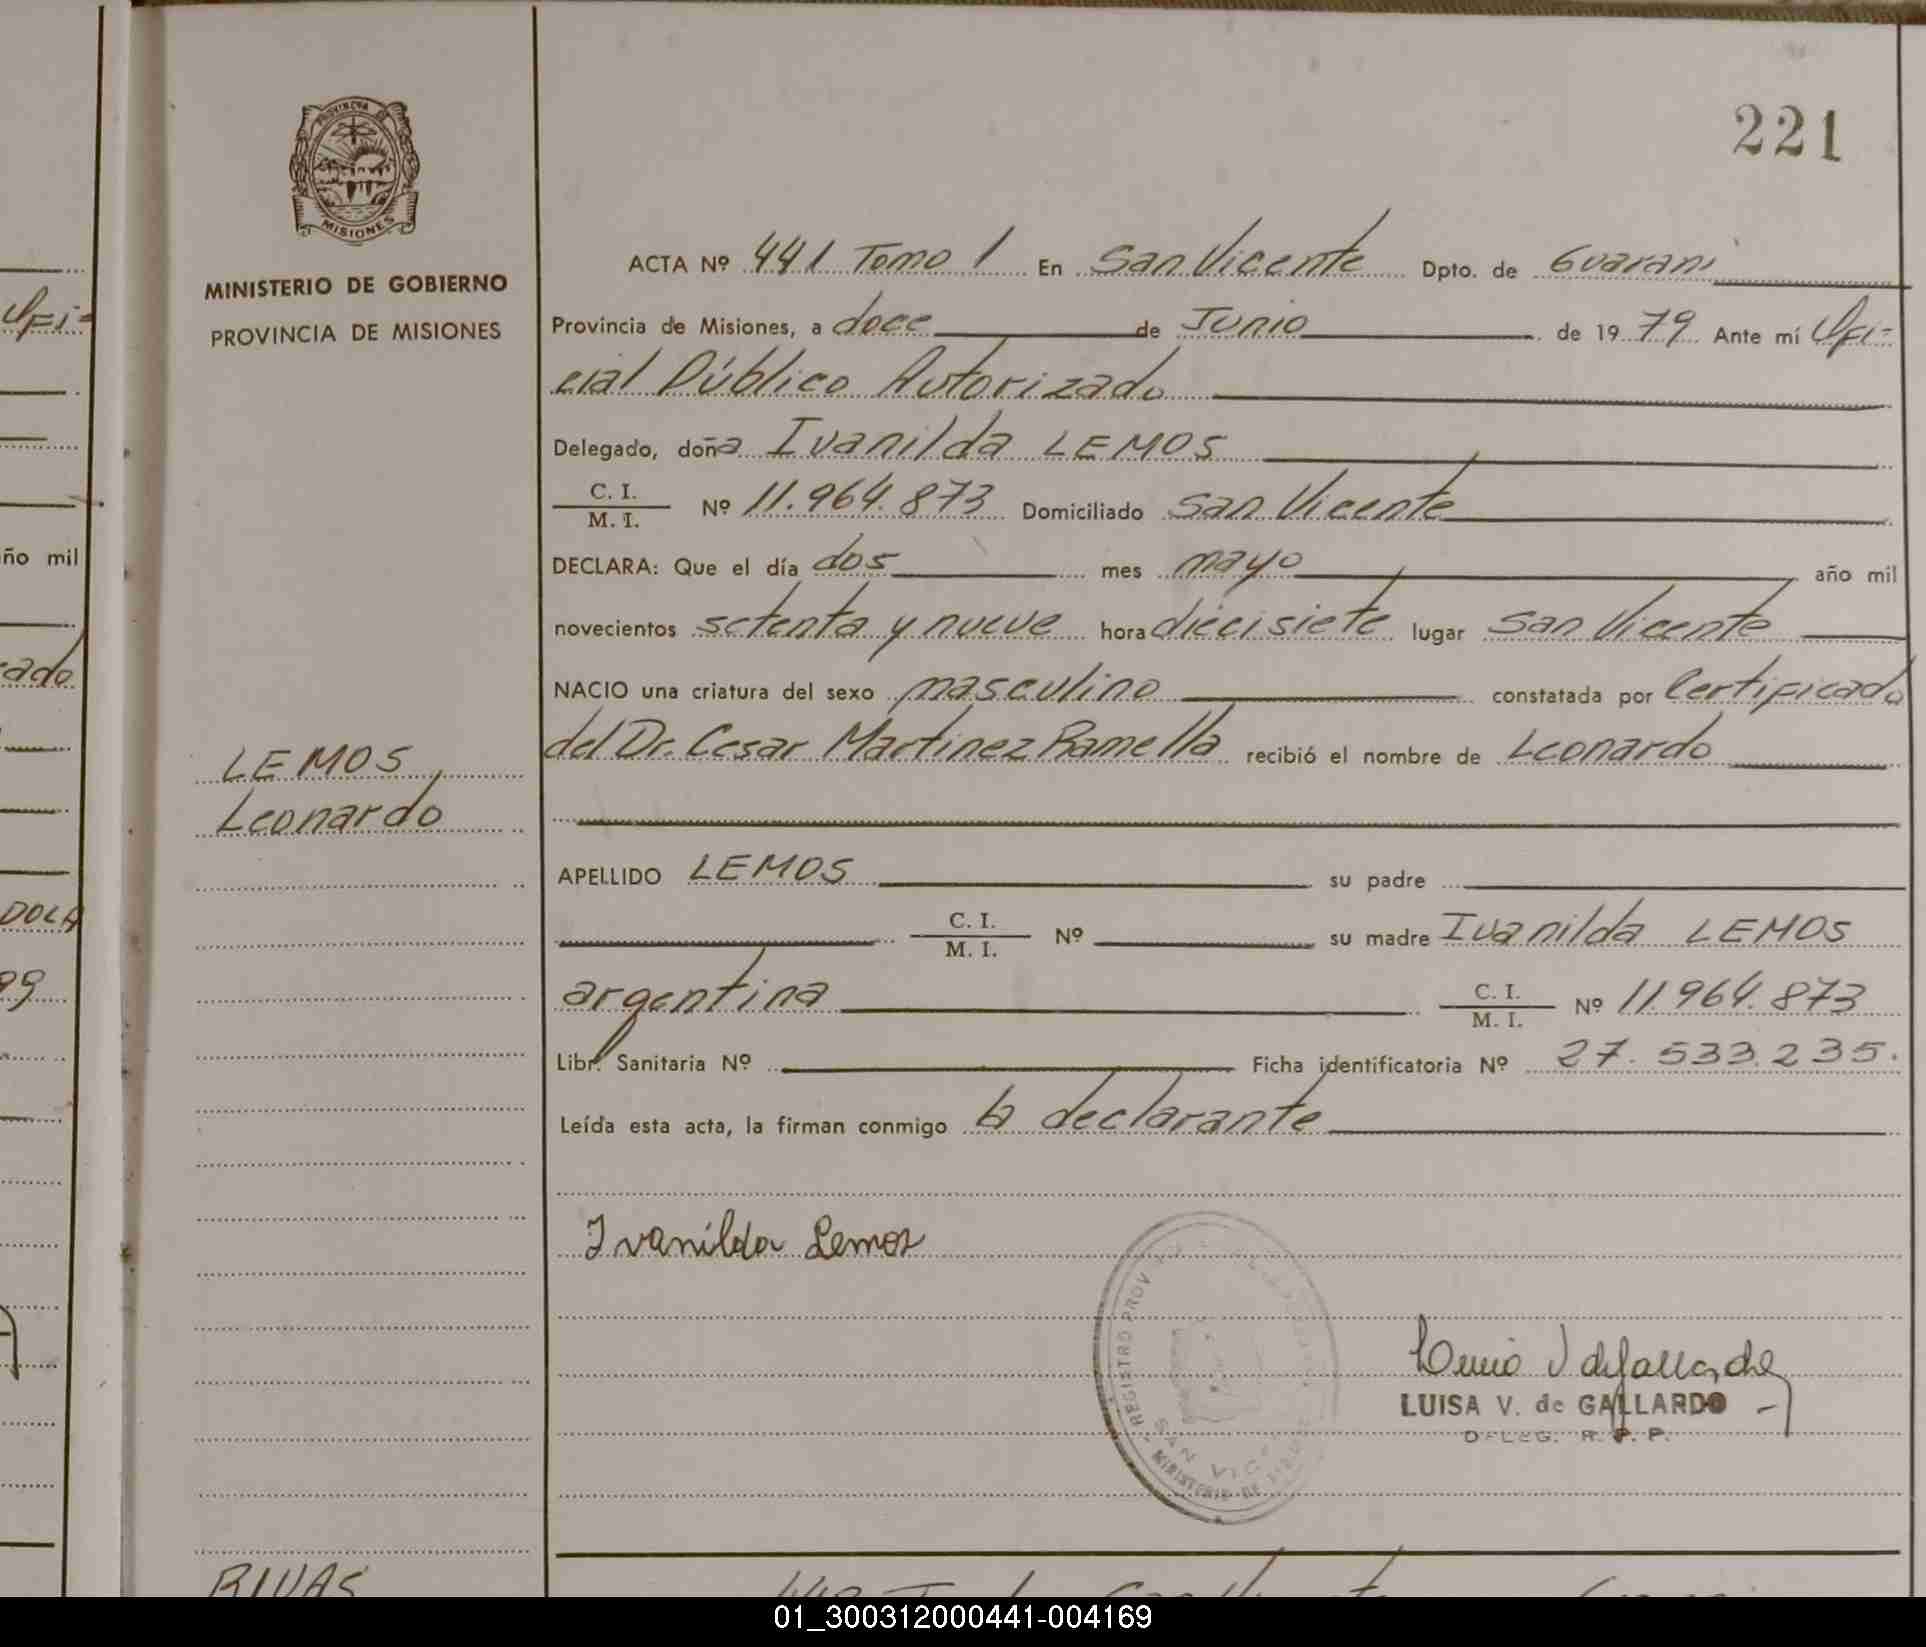 221
PROVINCIA DE
MISIONES
MINISTERIO DE GOBIERNO
PROVINCIA DE MISIONES
LEMOS
Leonardo
ACTA Nº 441 Tomo 1 En San Vicente Dpto. de Guaraní
Provincia de Misiones, a doce de Junio de 1979 Ante mí Ofi-
cial Público Autorizado
Delegado, doña Ivanilda LEMOS
C. I. / M. I. Nº 11.964.873 Domiciliado San Vicente
DECLARA: Que el día dos mes mayo año mil
novecientos setenta y nueve hora diecisiete lugar San Vicente
NACIO una criatura del sexo masculino constatada por Certificado
del Dr. Cesar Martinez Ramella recibió el nombre de Leonardo
APELLIDO LEMOS su padre
C. I. / M. I. Nº su madre Ivanilda LEMOS
argentina C. I. / M. I. Nº 11.964.873
Libr. Sanitaria Nº Ficha identificatoria Nº 27.533.235.
Leída esta acta, la firman conmigo la declarante
Ivanilda Lemos
REGISTRO PROV
SAN VIC
MINISTERIO DE
LUISA V. de GALLARDO
DELEG. R. P. P.
RIVAS
Ofi-
año mil
cado
DOLA
99
01_300312000441-004169